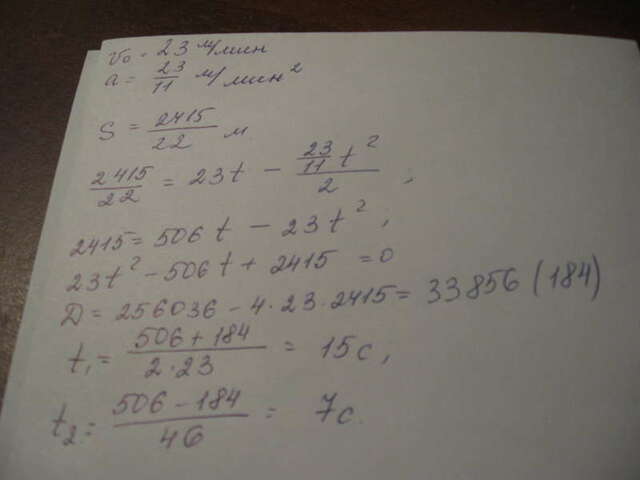 v₀ = 23 м/мин
a = 23/11 м/мин²
S = 2415/22 м
2415/22 = 23t - (23/11 t²)/2 ;
2415 = 506 t - 23t² ;
23t² - 506t + 2415 = 0
D = 256036 - 4·23·2415 = 33856 (184)
t₁ = (506 + 184)/(2·23) = 15c,
t₂ = (506 - 184)/46 = 7c.